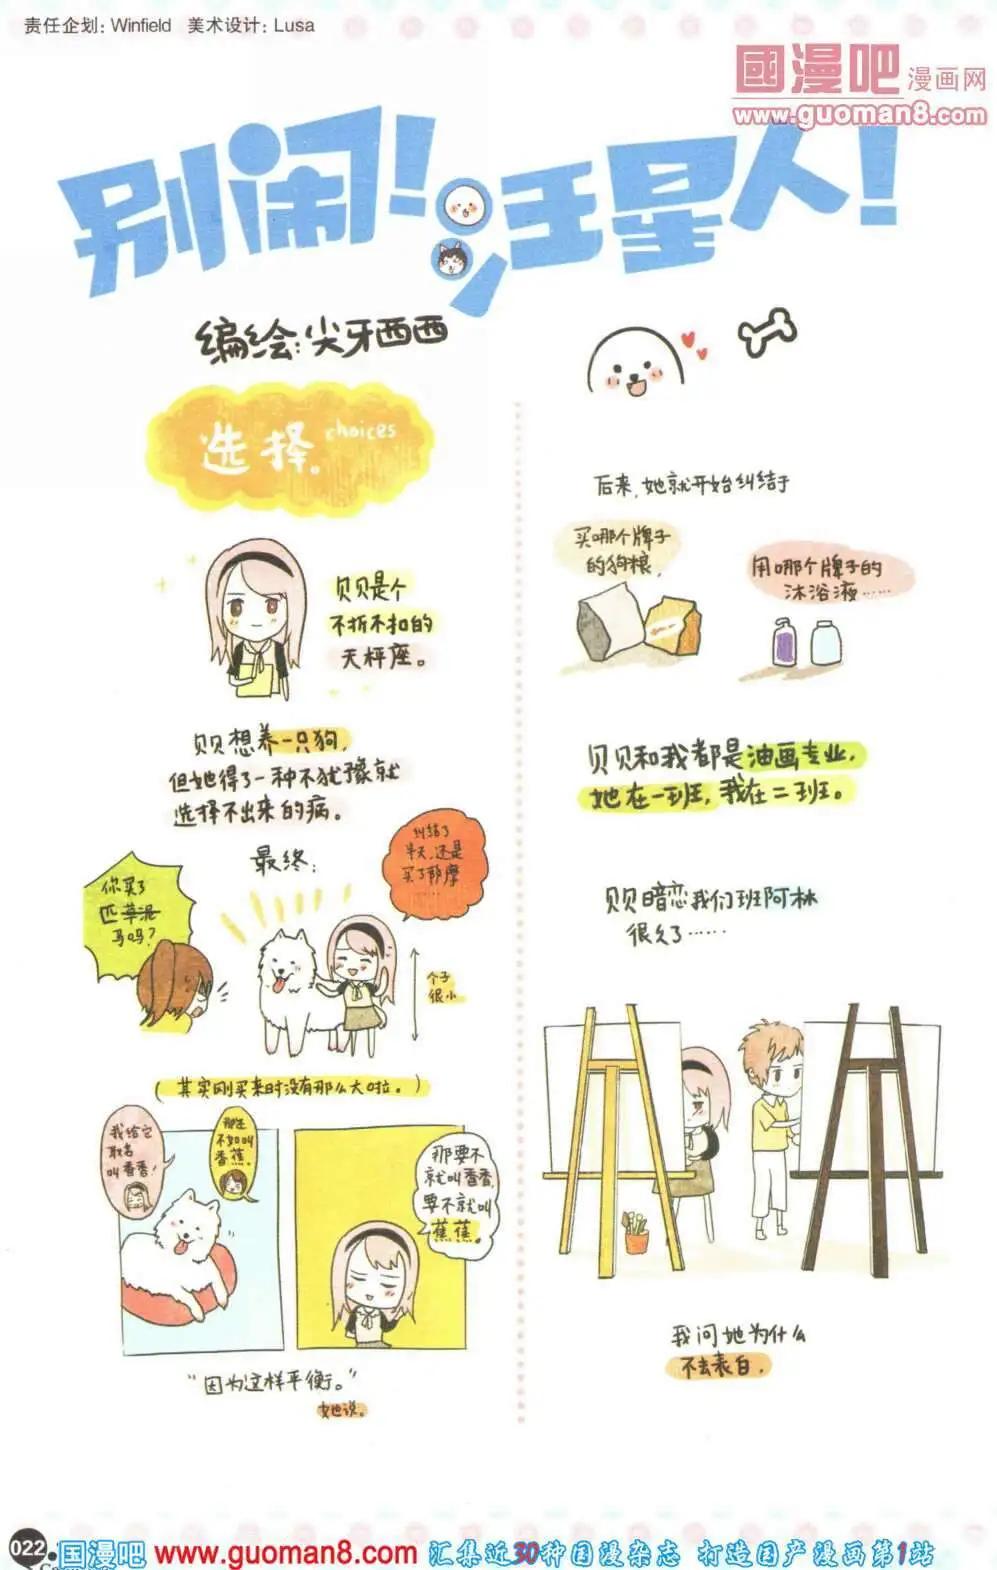 责任企划：Winfield 美术设计：Lusa
國漫吧 漫画网
www.guoman8.com
别闹！汪星人！
编绘：尖牙西西
选择。choices
贝贝是个
不折不扣的
天秤座。
贝贝想养一只狗，
但她得了一种不犹豫就
选择不出来的病。
最终：
你买了
匹草泥
马吗？
纠结了
半天，还是
买了萨摩
……
个子
很小
（其实刚买来时没有那么大啦。）
我给它
取名
叫香香！
那还
不如叫
香蕉。
那要不
就叫香香，
要不就叫
蕉蕉。
“因为这样平衡。”
她说。
后来，她就开始纠结于
买哪个牌子
的狗粮，
用哪个牌子的
沐浴液……
贝贝和我都是油画专业，
她在一班，我在二班。
贝贝暗恋我们班阿林
很久了……
我问她为什么
不去表白，
022
国漫吧 www.guoman8.com 汇集近30种国漫杂志 打造国产漫画第1站